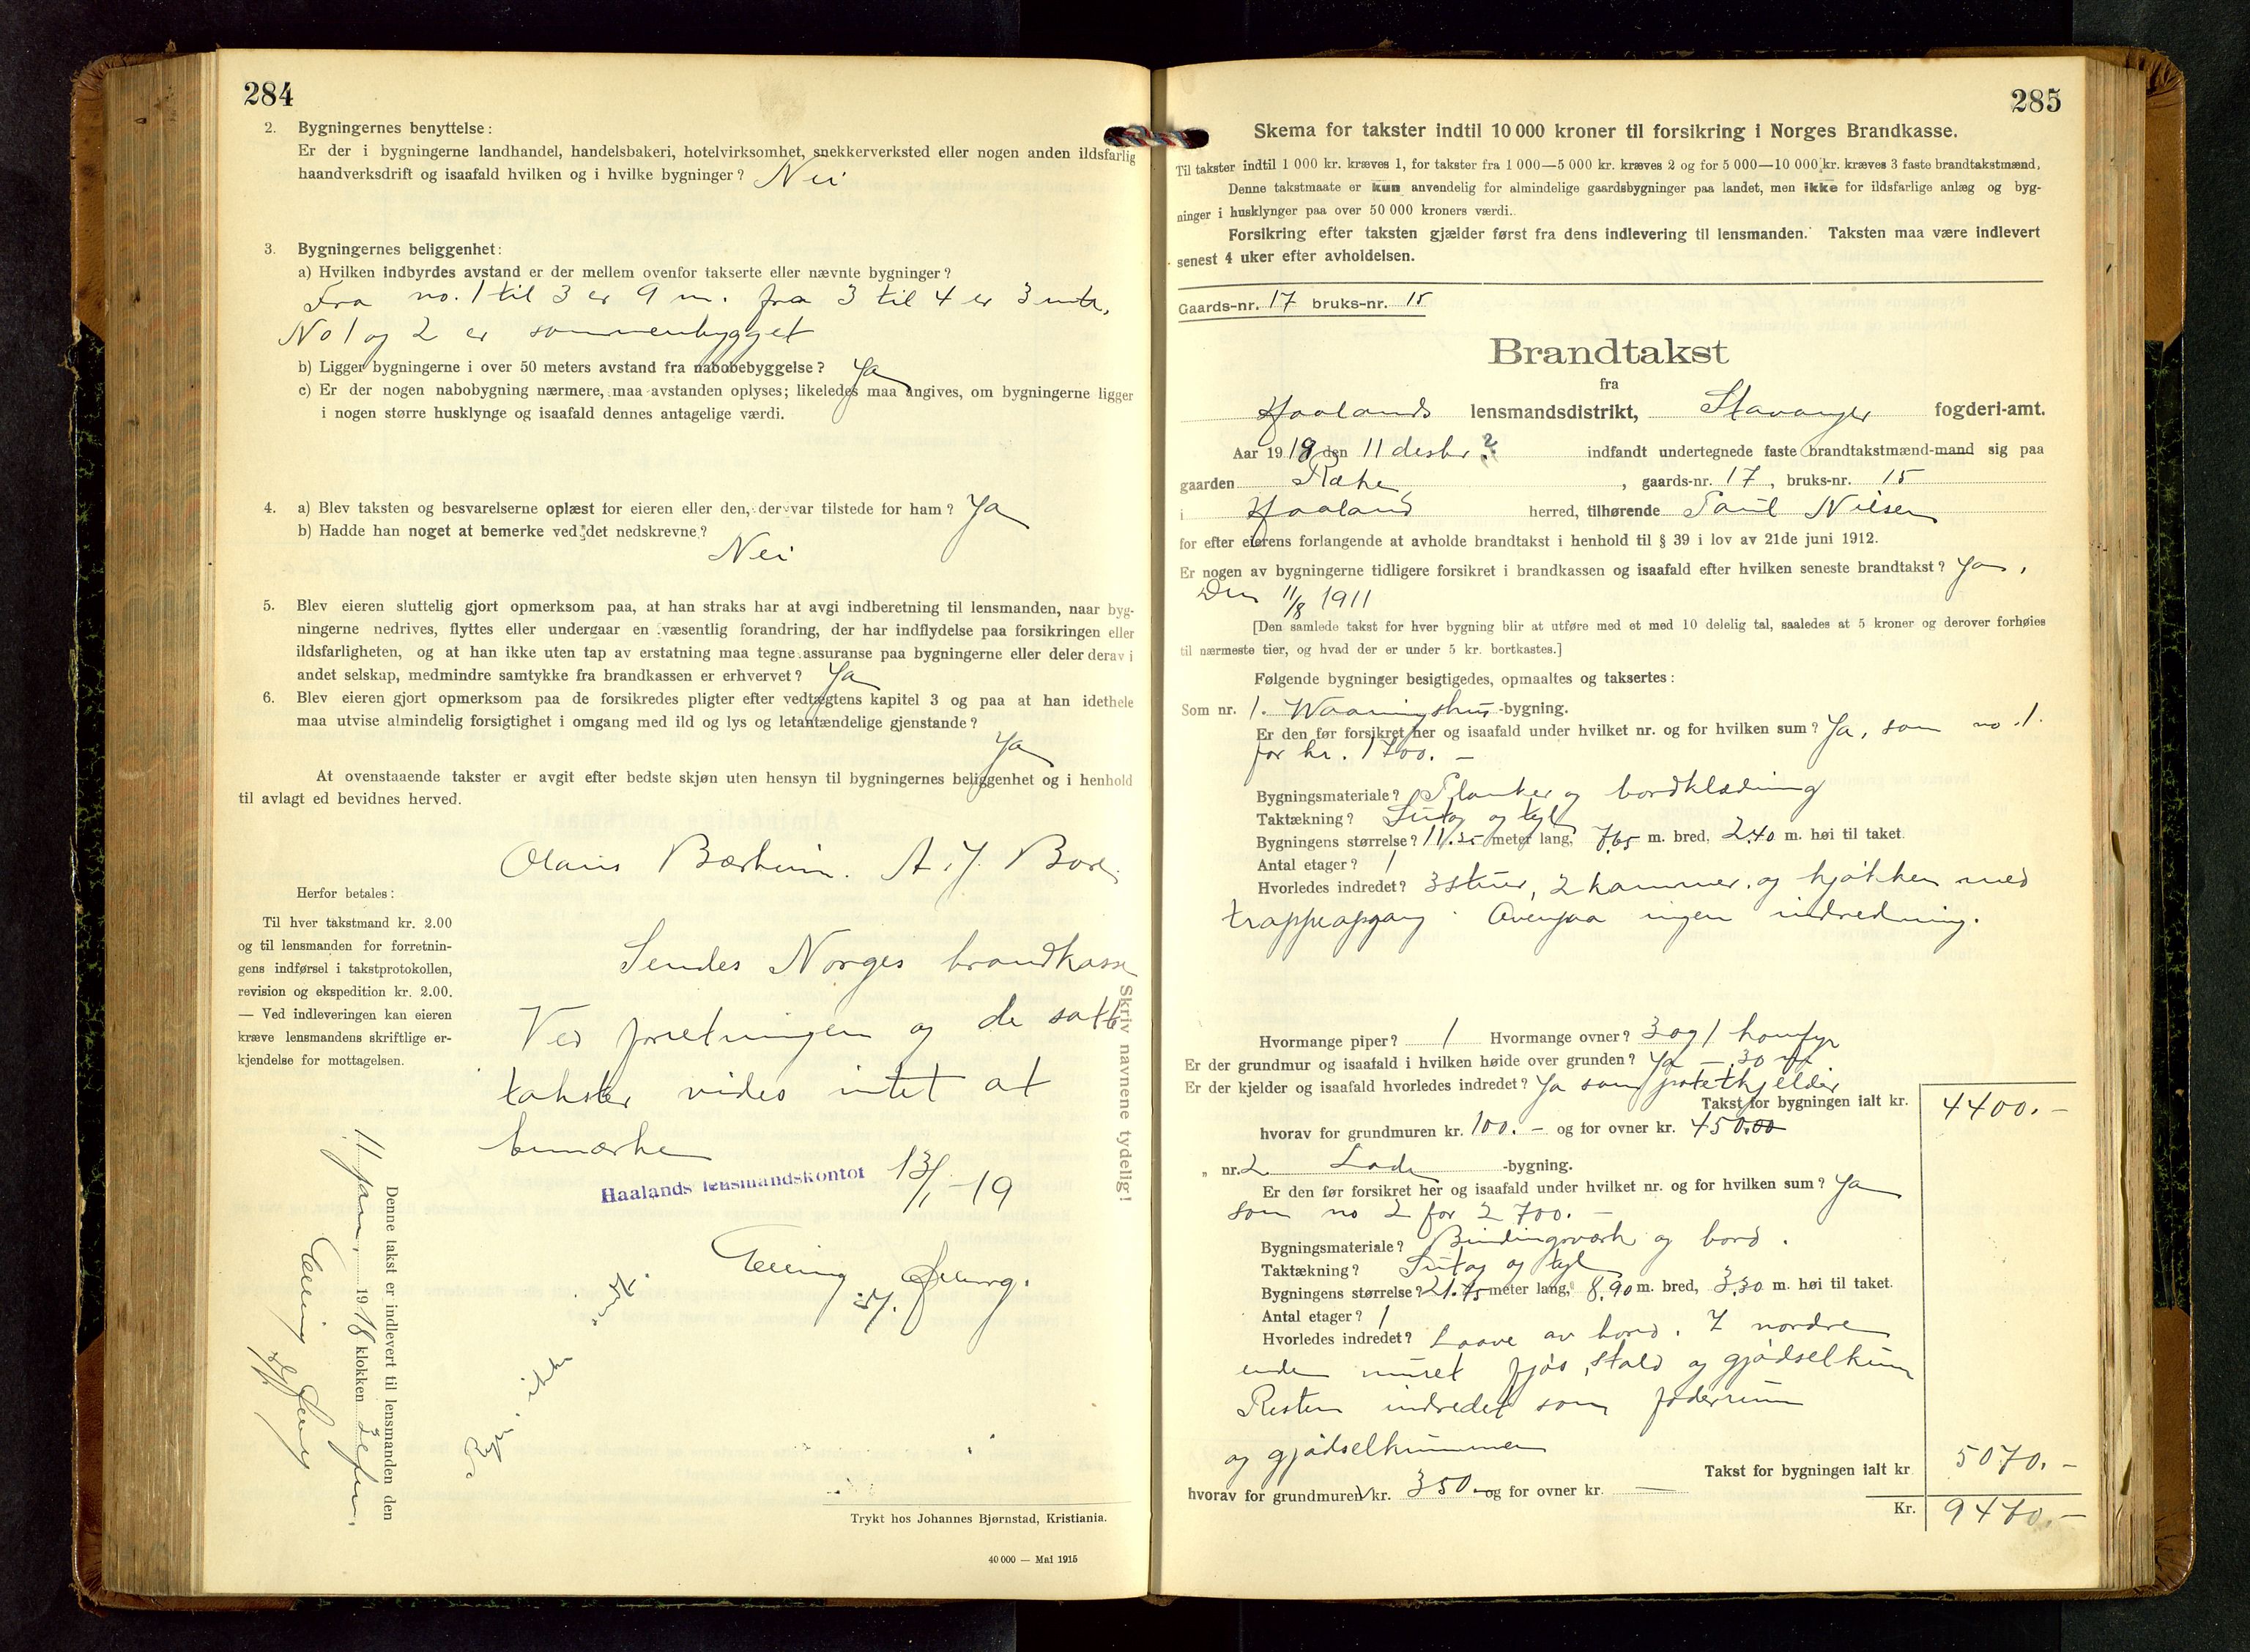 284
2. Bygningernes benyttelse:
Er der i bygningerne landhandel, handelsbakeri, hotelvirksomhet, snekkerverksted eller nogen anden ildsfarlig
haandverksdrift og isaafald hvilken og i hvilke bygninger? Nei
3. Bygningernes beliggenhet:
a) Hvilken indbyrdes avstand er der mellem ovenfor takserte eller nævnte bygninger?
Fra no. 1 til 3 er 9 m. fra 3 til 4 er 3 mtr.
No 1 og 2 er sammenbygget
b) Ligger bygningerne i over 50 meters avstand fra nabobebyggelse? Ja
c) Er der nogen nabobygning nærmere, maa avstanden oplyses; likeledes maa angives, om bygningerne ligger
i nogen større husklynge og isaafald dennes antagelige værdi.
4. a) Blev taksten og besvarelserne oplæst for eieren eller den, der var tilstede for ham? Ja
b) Hadde han noget at bemerke ved det nedskrevne?
Nei
5. Blev eieren sluttelig gjort opmerksom paa, at han straks har at avgi indberetning til lensmanden, naar byg-
ningerne nedrives, flyttes eller undergaar en væsentlig forandring, der har indflydelse paa forsikringen eller
ildsfarligheten, og at han ikke uten tap av erstatning maa tegne assuranse paa bygningerne eller deler derav i
andet selskap, medmindre samtykke fra brandkassen er erhvervet? Ja
6. Blev eieren gjort opmerksom paa de forsikredes pligter efter vedtægtens kapitel 3 og paa at han idethele
maa utvise almindelig forsigtighet i omgang med ild og lys og letantændelige gjenstande?
Ja
At ovenstaaende takster er avgit efter bedste skjøn uten hensyn til bygningernes beliggenhet og i henhold
til avlagt ed bevidnes herved.
Olaus Bærheim. A. J. Bore
Herfor betales:
Til hver takstmand kr. 2.00
og til lensmanden for forretnin-
gens indførsel i takstprotokollen,
revision og ekspedition kr. 2.00.
— Ved indleveringen kan eieren
kræve lensmandens skriftlige er-
kjendelse for mottagelsen.
Sendes Norges brandkasse
Ved forretningen og de satte
takster vides intet at
bemærke
Haalands lensmandskontor 13/1-19
Skriv navnene tydelig!
Denne takst er indlevert til lensmanden den
11 jan. 1918 klokken
ikke
Trykt hos Johannes Bjørnstad, Kristiania.
40 000 — Mai 1915
285
Skema for takster indtil 10 000 kroner til forsikring i Norges Brandkasse.
Til takster indtil 1 000 kr. kræves 1, for takster fra 1 000—5 000 kr. kræves 2 og for 5 000—10 000 kr. kræves 3 faste brandtakstmænd.
Denne takstmaate er kun anvendelig for almindelige gaardsbygninger paa landet, men ikke for ildsfarlige anlæg og byg-
ninger i husklynger paa over 50 000 kroners værdi.
Forsikring efter taksten gjælder først fra dens indlevering til lensmanden. Taksten maa være indlevert
senest 4 uker efter avholdelsen.
Gaards-nr. 17 bruks-nr. 15
Brandtakst
fra
Haalands lensmandsdistrikt, Stavanger fogderi-amt.
Aar 1918 den 11 desbr ? indfandt undertegnede faste brandtakstmænd-mand sig paa
gaarden Ræge, gaards-nr. 17, bruks-nr. 15
i Haaland herred, tilhørende Paul Nilsen
for efter eierens forlangende at avholde brandtakst i henhold til § 39 i lov av 21de juni 1912.
Er nogen av bygningerne tidligere forsikret i brandkassen og isaafald efter hvilken seneste brandtakst? Ja,
Den 11/8 1911
[Den samlede takst for hver bygning blir at utføre med et med 10 delelig tal, saaledes at 5 kroner og derover forhøies
til nærmeste tier, og hvad der er under 5 kr. bortkastes.]
Følgende bygninger besigtigedes, opmaaltes og taksertes:
Som nr. 1. Waaningshus-bygning.
Er den før forsikret her og isaafald under hvilket nr. og for hvilken sum? Ja, som no. 1.
for kr. 1700. —
Bygningsmateriale? Planker og bordklædning
Taktækning? Sutag og tegl
Bygningens størrelse? 11.25 meter lang, 7.65 m. bred, 2.40 m. høi til taket.
Antal etager? 1
Hvorledes indredet? 3 stuer, 2 kammer, og kjøkken med
trappeopgang. Ovenpaa ingen indredning.
Hvormange piper? 1 Hvormange ovner? 3 og 1 komfyr
Er der grundmur og isaafald i hvilken høide over grunden? Ja — 30
Er der kjelder og isaafald hvorledes indredet? Ja som potetkjelder
Takst for bygningen ialt kr. 4400.—
hvorav for grundmuren kr. 100.— og for ovner kr. 450.00
„ nr. 2 Lade -bygning.
Er den før forsikret her og isaafald under hvilket nr. og for hvilken sum? Ja
som no 2 for 2 700. —
Bygningsmateriale? Bindingsværk og bord.
Taktækning? Sutag og tegl
Bygningens størrelse? 21.75 meter lang, 8.90 m. bred, 3.30 m. høi til taket.
Antal etager? 1
Hvorledes indredet? Laave av bord. I nordre
enden muret fjøs, stald og gjødselkum
Resten indredet som foderrum
og gjødselkummen
Takst for bygningen ialt kr. 5070.—
hvorav for grundmuren kr. 350.— og for ovner kr. —
Kr. 9470.—